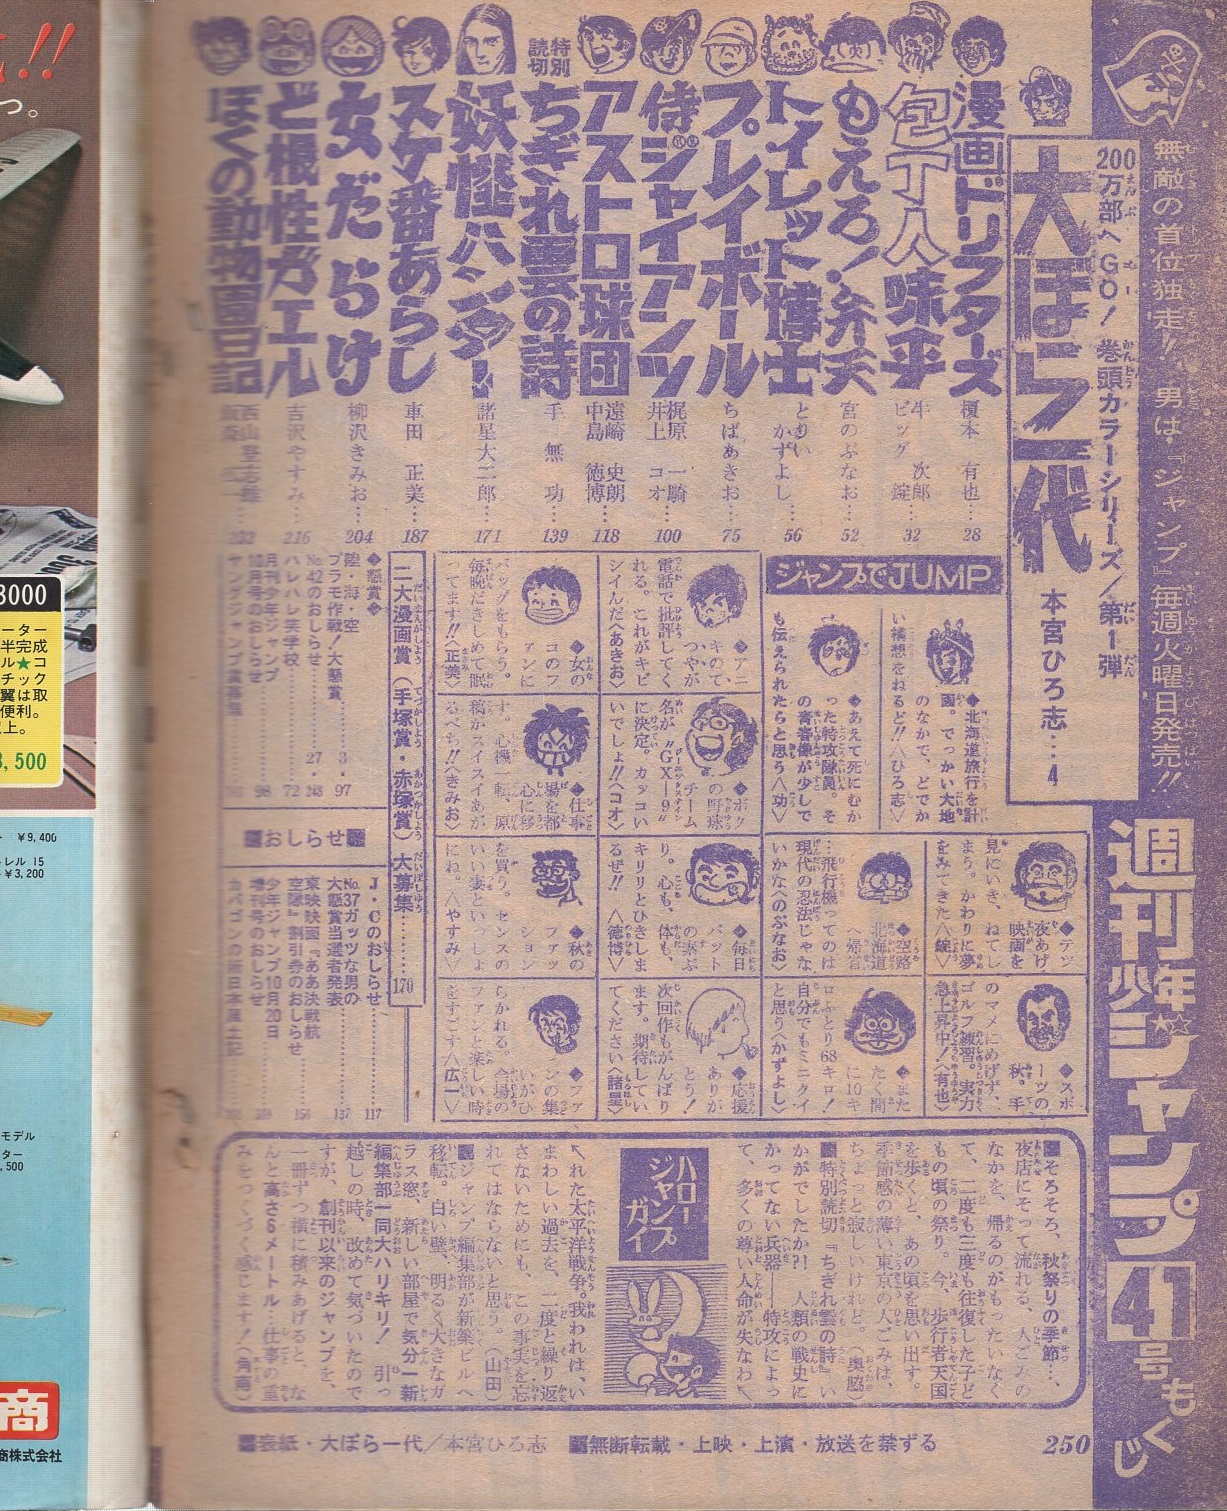 無敵の首位独走!! 男は『ジャンプ』毎週火曜日発売!!
週刊少年ジャンプ41号もくじ
200万部へGO! 巻頭カラーシリーズ/第1弾
大ぼら一代
本宮ひろ志…4
漫画ドリフターズ
榎本 有也…28
包丁人味平
牛 次郎
ビッグ 錠…32
もえろ!弁天
宮のぶなお…52
トイレット博士
とりい かずよし…56
プレイボール
ちばあきお…75
侍ジャイアンツ
梶原 一騎
井上 コオ…100
アストロ球団
遠崎 史朗
中島 徳博…118
特別読切
ちぎれ雲の詩
手 無 功…139
妖怪ハンター
諸星大二郎…171
スケ番あらし
車田 正美…187
女だらけ
柳沢きみお…204
ど根性ガエル
吉沢やすみ…216
ぼくの動物園日記
西山登志雄
232
ジャンプでJUMP
◆北海道旅行を計
画。でっかい大地
のなかで、どでか
い構想をねるど!!〈ひろ志〉
◆あえて死にむか
った特攻隊員。そ
の青春像が少しで
も伝えられたらと思う〈功〉
◆アニ
キのて
つやが
電話で批評してく
れる。これがキビ
シイんだ〈あきお〉
◆女の
コのフ
ァンに
バッグをもらう。
毎晩だきしめて眠
ってます!!〈正美〉
◆ボク
の野球
チーム
名が〝GX―9〟
に決定。カッコい
いでしょ!!〈コオ〉
◆仕事
場を都
心に移
す。心機一転、原
稿がスイスイあが
るべち!!〈きみお〉
◆テツ
夜あげ
映画を
見にいき、ねてし
まう。かわりに夢
をみてきた〈錠〉
◆空路
北海道
へ帰省
…飛行機ってのは
現代の忍法じゃな
いかな〈のぶなお〉
◆毎日
バット
の素ぶ
り。心も、体も、
キリリとひきしま
るぜ!!〈徳博〉
◆秋の
ファッ
ション
を買う。センスの
いい妻といっしょ
にね。〈やすみ〉
◆スポ
ーツの
秋。手
のマメにめげず、
ゴルフ練習。実力
急上昇中!〈有也〉
◆また
たく間
に10キ
ロふとり68キロ!
自分でもミニクイ
と思う〈かずよし〉
◆応援
ありが
とう!
次回作もがんばり
ます。期待してい
てください〈諸星〉
◆ファ
ンの集
いがひ
らかれる。会場の
ファンと楽しい時
をすごす〈広一〉
二大漫画賞(手塚賞・赤塚賞)大募集………170
◆懸賞◆
陸・海・空
プラモ作戦!大懸賞……3・97
No.42のおしらせ……27・248
ハレハレ笑学校……72
月刊少年ジャンプ
10月号のおしらせ……98
ヤングジャンプ賞募集
おしらせ
J・Cのおしらせ……117
No.37ガッツな男の
大懸賞当選者発表……137
東映映画『ああ決戦航
空隊』割引券のおしらせ
少年ジャンプ10月20日
増刊号のおしらせ
カバゴンの新日本風土記
ハロージャンプガイ
■そろそろ、秋祭りの季節…、
夜店にそって流れる、人ごみの
なかを、帰るのがもったいなく
て、二度も三度も往復した子ど
もの頃の祭り。今、歩行者天国
を歩くと、あの頃を思い出す。
季節感の薄い東京の人ごみは、
ちょっと寂しいけれど。(奥脇)
■特別読切『ちぎれ雲の詩』い
かがでしたか?! 人類の戦史に
かってない兵器――特攻によっ
て、多くの尊い人命が失なわ
れた太平洋戦争。我われは、い
まわしい過去を、二度と繰り返
さないためにも、この事実を忘
れてはならないと思う。(山田)
■ジャンプ編集部が新築ビルへ
移転。白い壁、明るく大きなガ
ラス窓、新しい部屋で気分一新
編集部一同大ハリキリ! 引っ
越しの時、改めて気づいたので
すが、創刊以来のジャンプを、
一冊ずつ横に積みあげると、な
んと高さ6メートル…仕事の重
みをつくづく感じます!(角南)
■表紙・大ぼら一代/本宮ひろ志 ■無断転載・上映・上演・放送を禁ずる 250
!!
つ。
3000
ーター
半完成
ル★コ
チック
翼は取
便利。
上。
3,500
¥9,400
レル 15
¥3,200
モデル
ター
,500
商
商株式会社